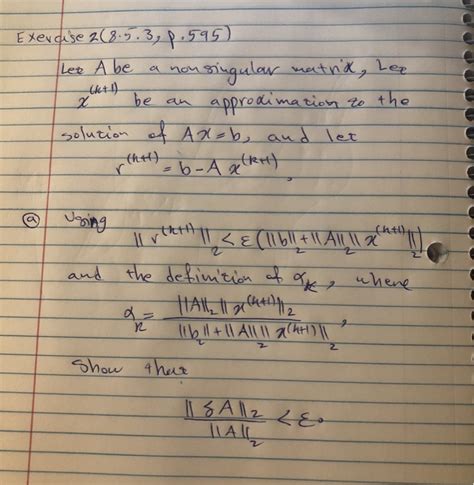 Exercise 2 (8.5.3, p.595)
Let A be a nonsingular matrix, Let
x^(k+1) be an approximation to the
solution of Ax=b, and let
r^(k+1) = b-A x^(k+1),
(a) Using
||r^(k+1)||_2 < ε(||b||_2+||A||_2||x^(k+1)||_2)
and the definition of α_k, where
α_k = ||A||_2||x^(k+1)||_2 / ||b||_2+||A||_2||x^(k+1)||_2,
Show that
||δA||_2 / ||A||_2 < ε.